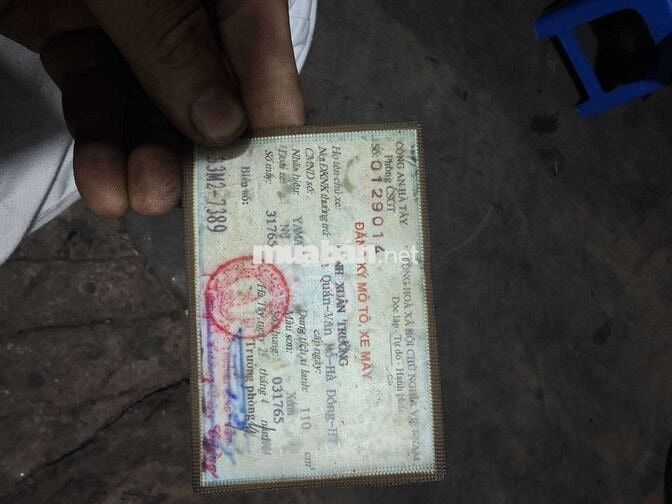 CỘNG HOÀ XÃ HỘI CHỦ NGHĨA VIỆT NAM
Độc lập - Tự do - Hạnh phúc
CÔNG AN HÀ TÂY
Phòng CSGT
SỐ 0129014
ĐĂNG KÝ MÔ TÔ, XE MÁY
Họ tên chủ xe: XUÂN TRƯỜNG
Nơi ĐKNK thường trú: Quán-Văn Mỗ-Hà Đông-HT
CMND số: cấp ngày:
Nhãn hiệu: YAMA Dung tích xi lanh: 110 cm³
Đời xe: Màu sơn: Xám
Số máy: 31765 Số khung: 031765
Biển số: Hà Tây, ngày tháng năm
33M2-7389
Trưởng phòng
muaban.net